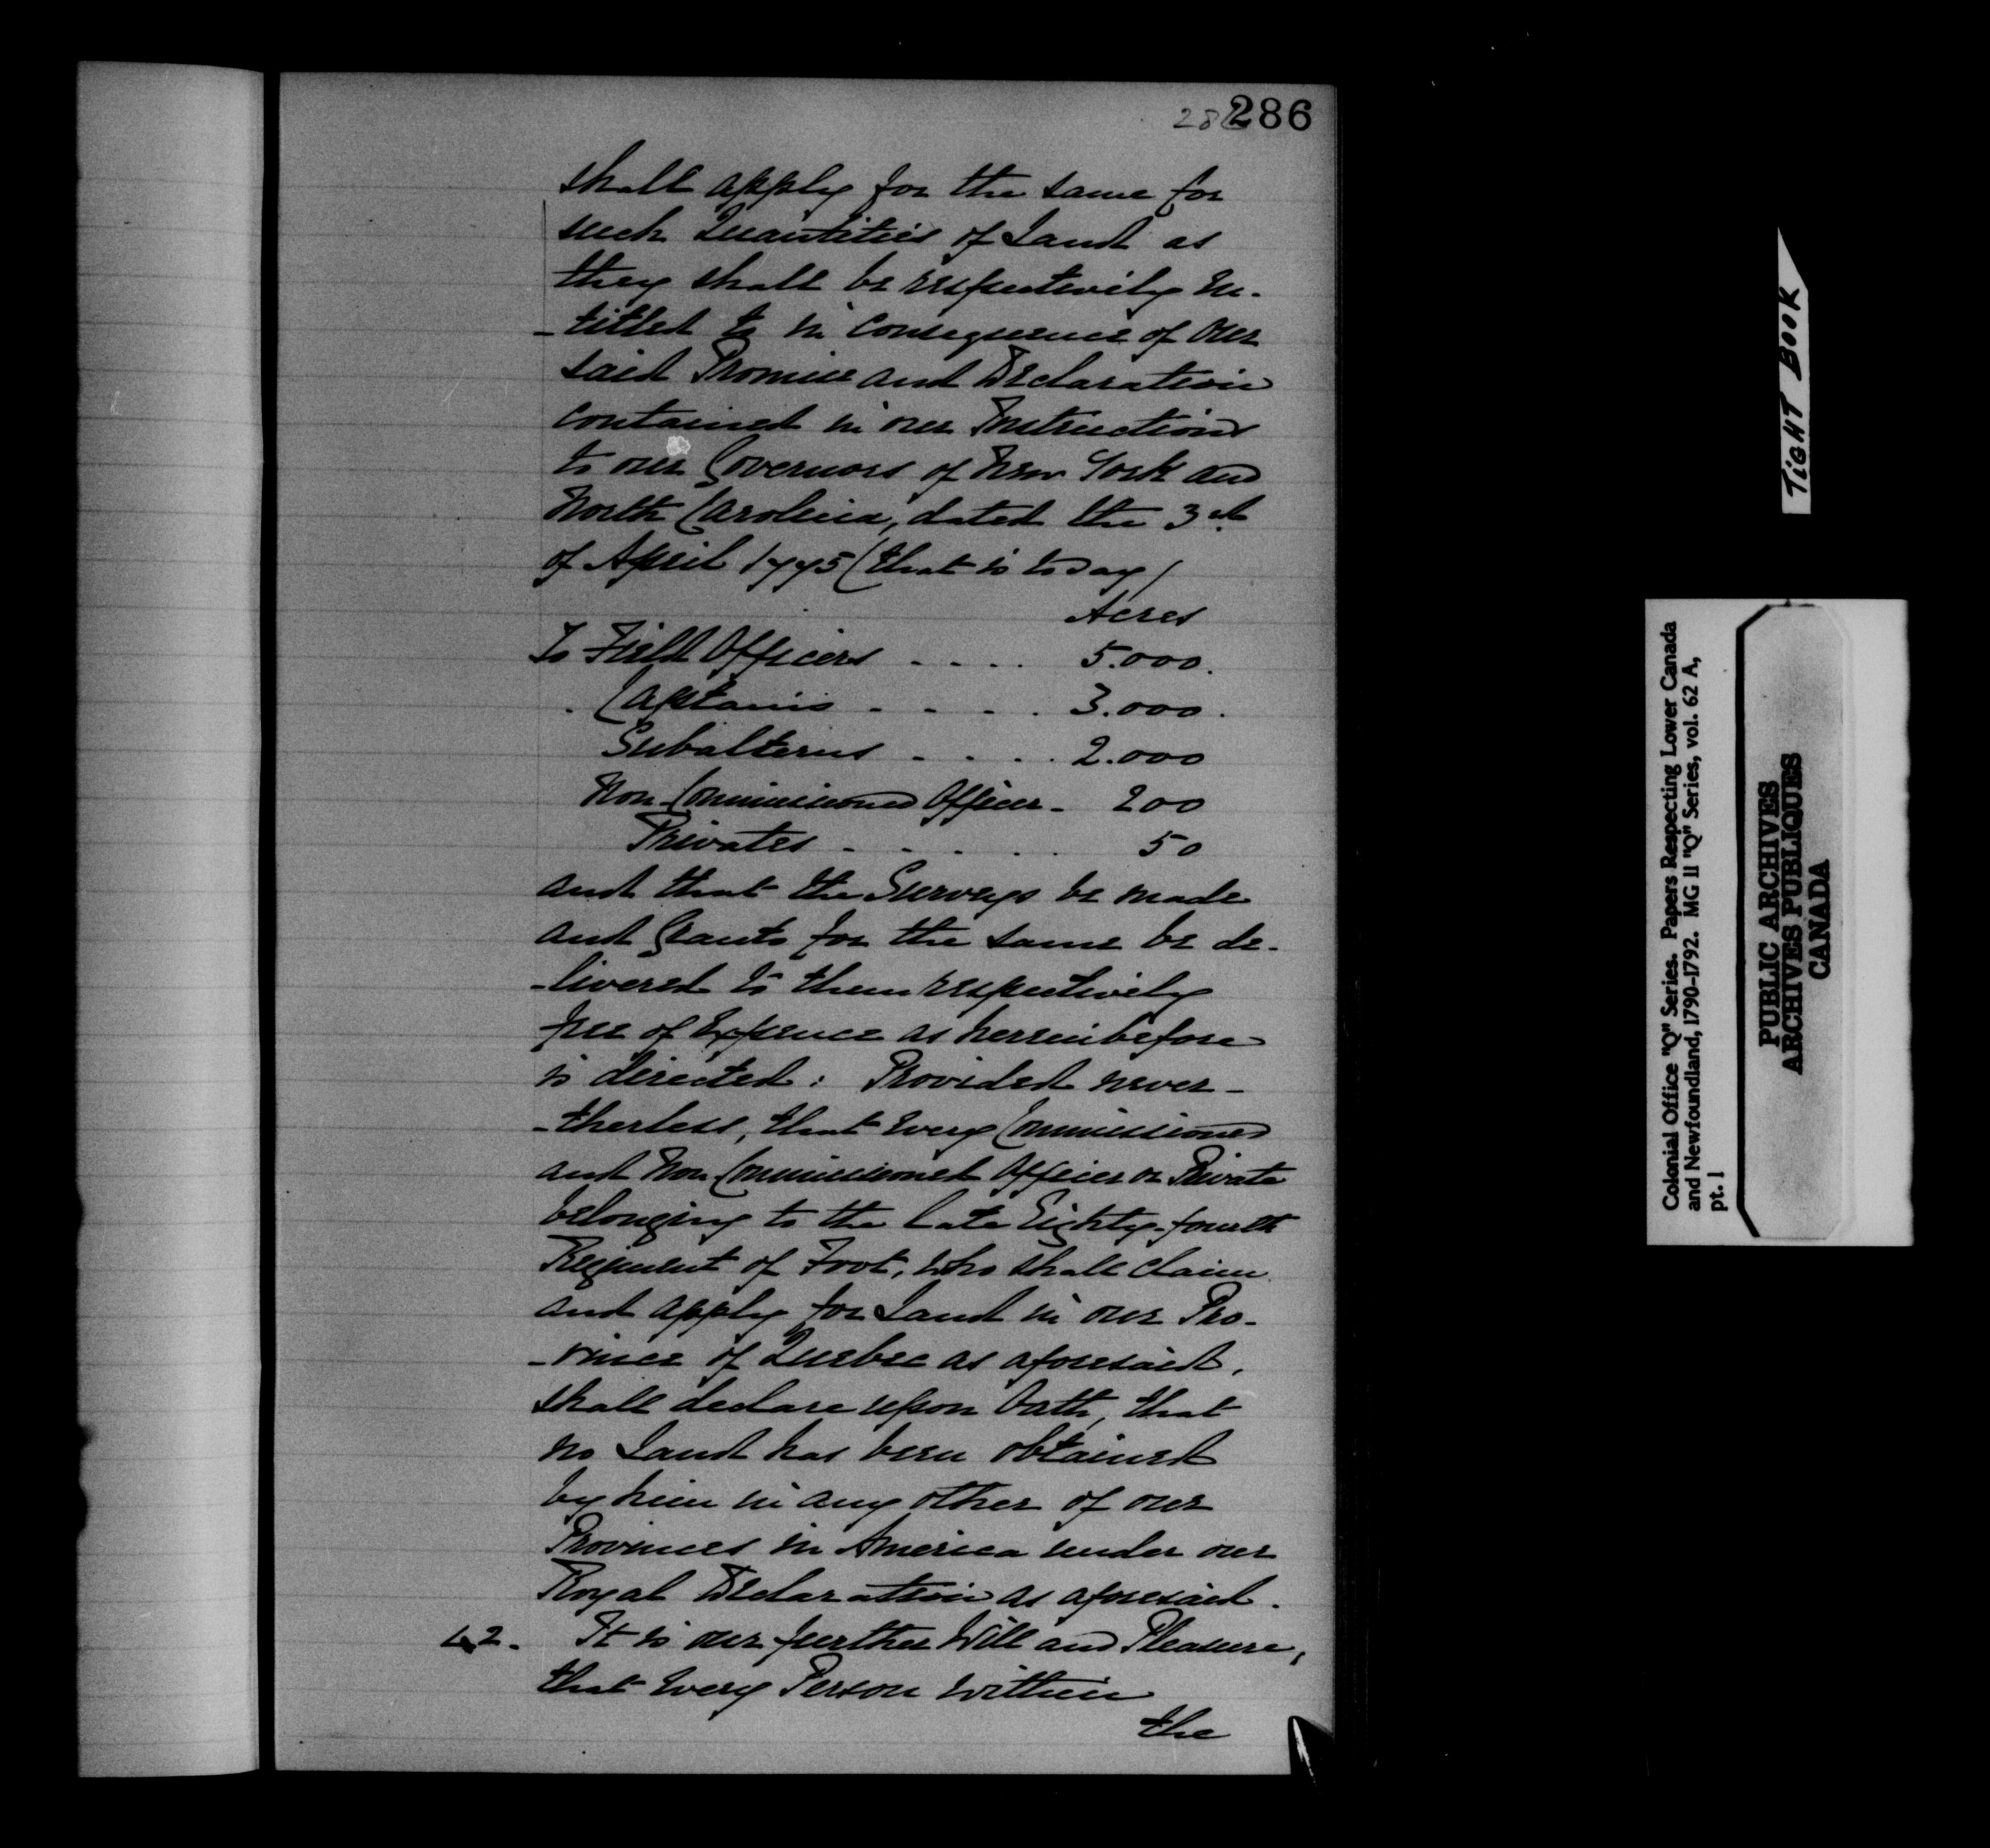 286
286
shall apply for the same for
such Quantities of Land as
they shall be respectively en-
-titled to in consequence of our
said Promise and Declaration
contained in our Instructions
to our Governors of New York and
North Carolina, dated the 3d
of April 1775 (that is to say/
Acres
To Field Officers .... 5.000.
. Captains - - - - . 3.000.
Subalterns - . . . 2.000
Non-Commissioned Officer - 200
Privates . . . . . . 50
and that the Surveys be made
and Grants for the same be de-
-livered to them respectively
free of Expence as hereinbefore
is directed: Provided never-
-theless, that every Commissioned
and Non-Commissioned Officer or Private
belonging to the late Eighty-fourth
Regiment of Foot, who shall claim
and apply for Land in our Pro-
-vince of Quebec as aforesaid,
shall declare upon Oath, that
no Land has been obtained
by him in any other of our
Provinces in America under our
Royal Declaration as aforesaid.
42. It is our further Will and Pleasure,
that every Person within
the
TIGHT BOOK
Colonial Office "Q" Series. Papers Respecting Lower Canada
and Newfoundland, 1790-1792. MG 11 "Q" Series, vol. 62 A,
pt. 1
PUBLIC ARCHIVES
ARCHIVES PUBLIQUES
CANADA